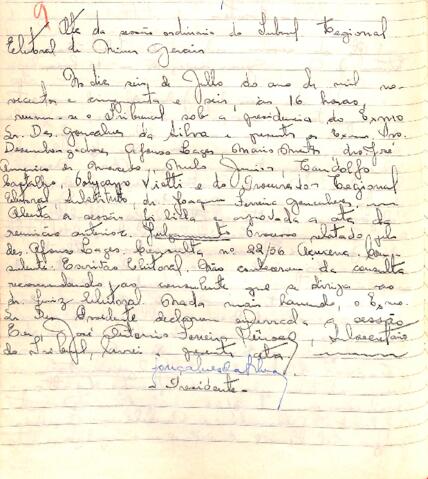 9 Ata da sessão ordinária do Tribunal Regional
Eleitoral de Minas Gerais
No dia seis de Julho do ano de mil no-
vecentos e cinquenta e seis, às 16 horas,
reuniu-se o Tribunal sob a presidencia do Exmo
Sr. Des. Gonçalves da Silva e presentes os Exmos. Srs.
Desembargadores Afonso Lages, Mario Matos, drs José
Americo de Macedo, Paulo Junior,
Policarpo Viotti e do Procurador Regional
Eleitoral Substituto, dr Joaquim Ferreira Gonçalves.
Aberta a sessão foi lida e aprovada a ata da
reunião anterior. Julgamento Processo relatado pelo
des. Afonso Lages. Consulta nº 22/56 Açucena. Con-
sulente: Escrivão Eleitoral. Não conheceram da consulta
recomendando ao consulente que se dirija ao
dr Juiz Eleitoral. Nada mais havendo, o Exmo.
Sr. Des. Presidente declarou encerrada a sessão
Eu, José Antonio Ferreira, Subsecretario
do Tribunal, lavrei a presente ata
Gonçalves da Silva
Presidente.